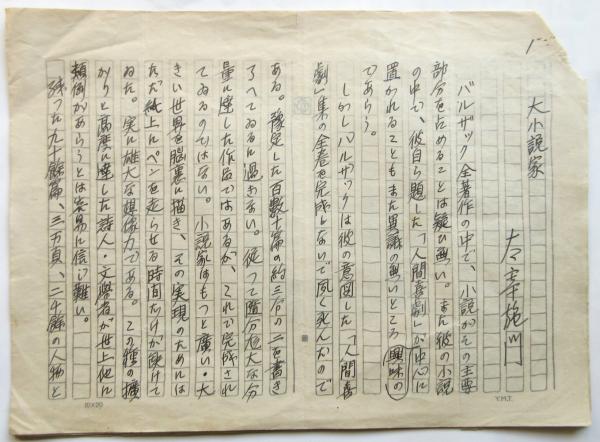 大小説家
太宰施門
バルザック全著作の中で、小説がその主要
部分を占めることは疑ひ無い。また彼の小説
の中で、彼自ら題した「人間喜劇」が中心に
置かれることもまた異議の無いところ
興味の
であらう。
しかしバルザックは彼の意図した「人間喜
劇」集の全巻を完成しないで夙く死んだので
ある。豫定した百数十篇の約三分の二を書き
了へてゐるに過ぎない。従つて随分厖大な分
量に達した作品ではあるが、これで完成され
てゐるのではない。小説家はもつと広い・大
きい世界を脳裏に描き、その実現のためには
ただ紙上にペンを走らせる時間だけが缺けて
ゐた。実に雄大な想像力である。この種の擴
がりと高度に達した詩人・文學者が世上他に
類例があらうとは容易に信じ難い。
残つた九十餘篇、三万頁、二千餘の人物と
10×20
Y.M.T.